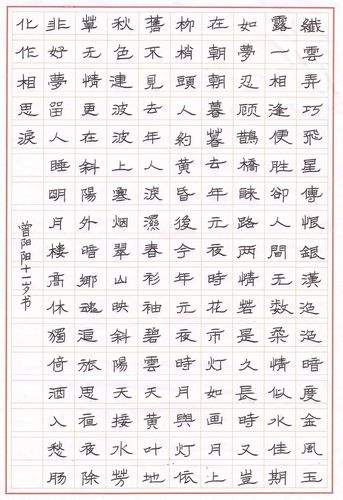 纖雲弄巧飛星傳恨銀漢迢迢暗度金風玉
露一相逢便勝卻人間无數柔情似水佳期
如夢忍顾鵲橋歸路兩情若是久長時又豈
在朝朝暮暮去年元夜時花市灯如畫月上
柳梢頭人約黄昏後今年元夜時月與灯依
舊不見去年人淚濕春衫袖碧雲天黄葉地
秋色連波波上寒烟翠山映斜陽天接水芳
草无情更在斜陽外暗鄉魂追旅思夜夜除
非好夢留人睡明月樓高休獨倚酒入愁肠
化作相思淚
曾阳阳十一岁书